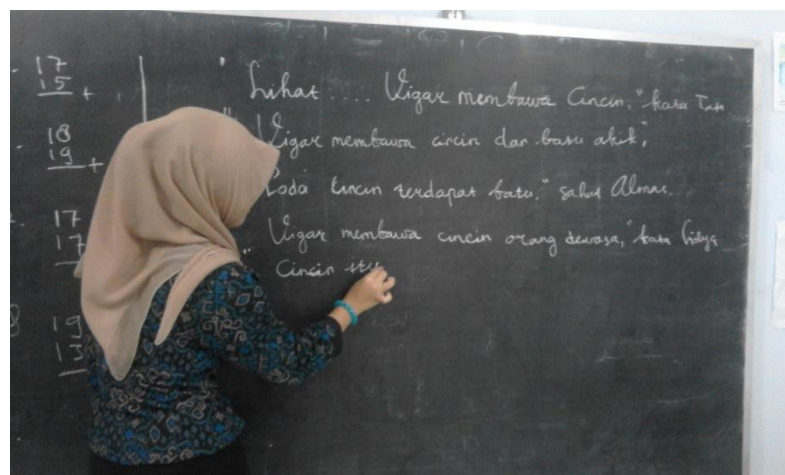 17
15 +
18
19 +
17
17
19
13
" Lihat .... Vigar membawa Cincin," kata Tata
" Vigar membawa cincin dan batu akik,"
Pada Cincin terdapat batu." sahut Almas.
Vigar membawa cincin orang dewasa," kata
" Cincin itu